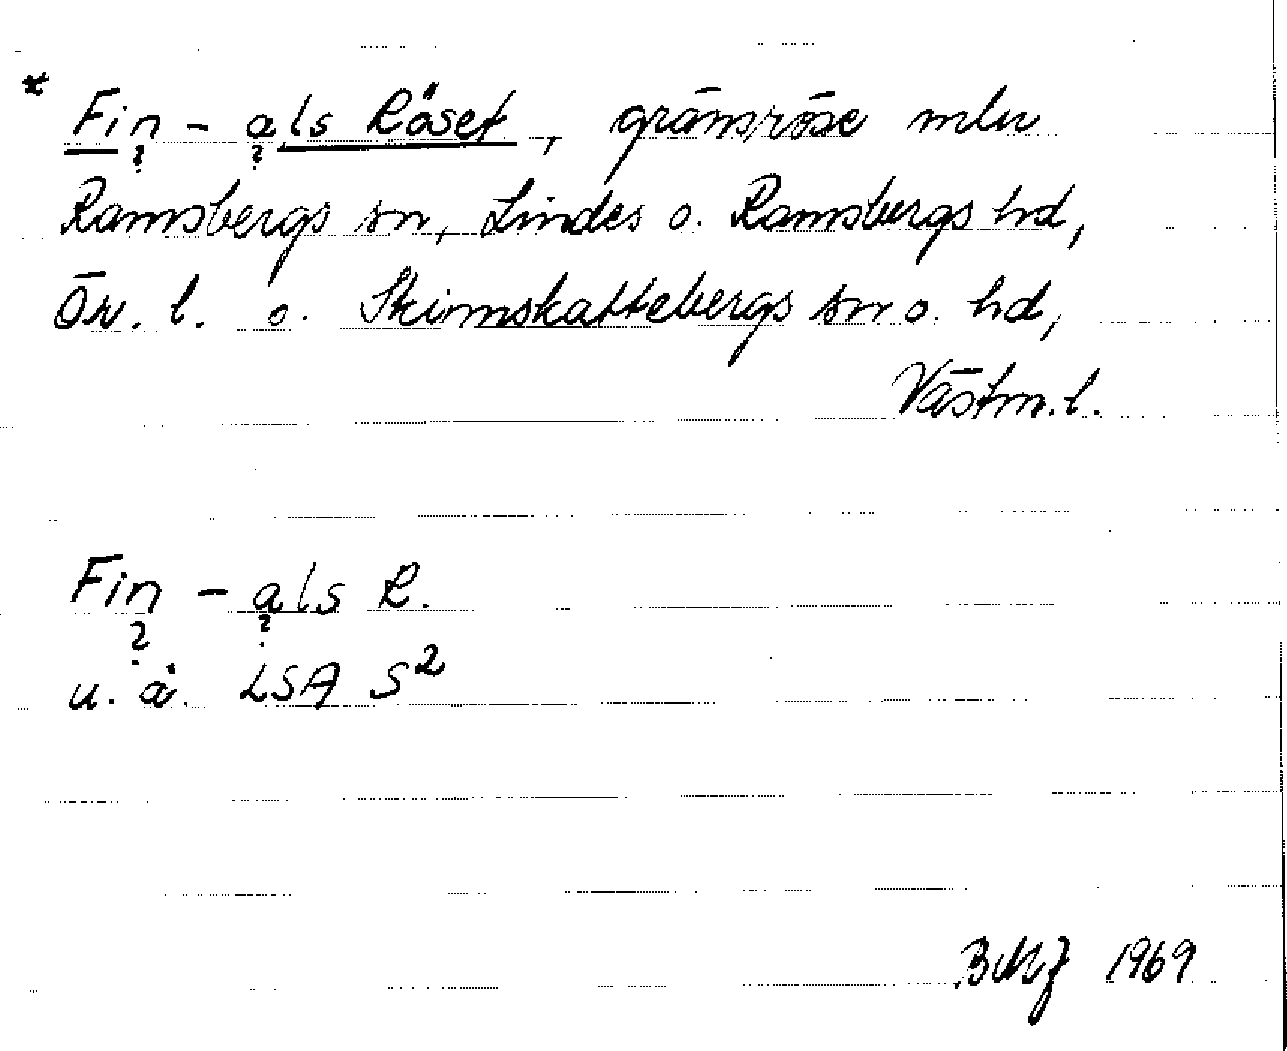 * Fin - als Röset, gränsröse mlu
? ?
Ramsbergs sn, Lindes o. Ramsbergs hd,
Ör. l. o. Skinnskattebergs sn o. hd,
Västm. l.
Fin - als R.
? ?
u. å. LSA S²
1969